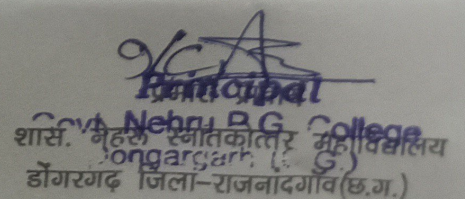 Principal
Govt. Nehru P.G. College
शास. नेहरू स्नातकोत्तर महाविद्यालय
Dongargarh (C.G.)
डोंगरगढ़ जिला-राजनादगाँव (छ.ग.)